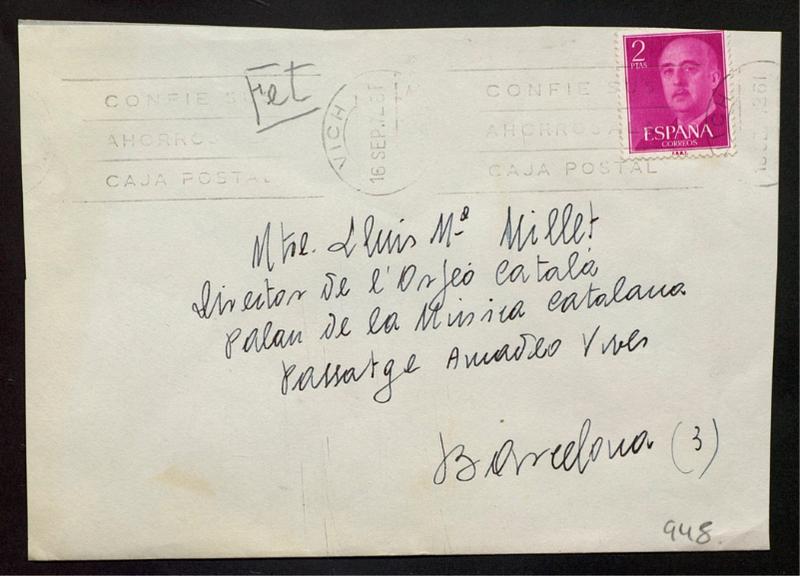 CONFIE SUS
AHORROS
CAJA POSTAL
Fet
VICH
16 SEP.
CONFIE SUS
AHORROS A LA
CAJA POSTAL
2
PTAS
ESPAÑA
CORREOS
Mtre. Lluis Mª Millet
Director de l'Orfeó Català
Palau de la Música Catalana
Passatge Amadeo Vives
Barcelona (3)
948.